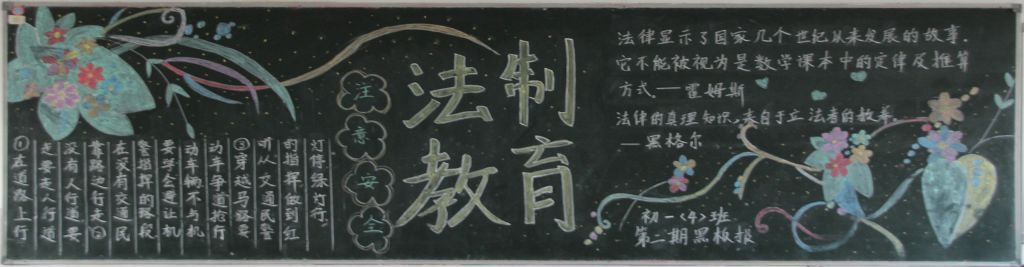 ①在道路上行
走要走人行道
没有人行道要
靠路边行走②
在没有交通民
警指挥的路段
要学会避让机
动车辆不与机
动车争道抢行
③穿越马路要
听从交通民警
的指挥做到红
灯停绿灯行.
注意安全
法制
教育
法律显示了国家几个世纪以来发展的故事.
它不能被视为是数学课本中的定律及推算
方式.——霍姆斯
法律的真理知识,来自于立法者的教养.
—黑格尔
初一<4>班
第二期黑板报